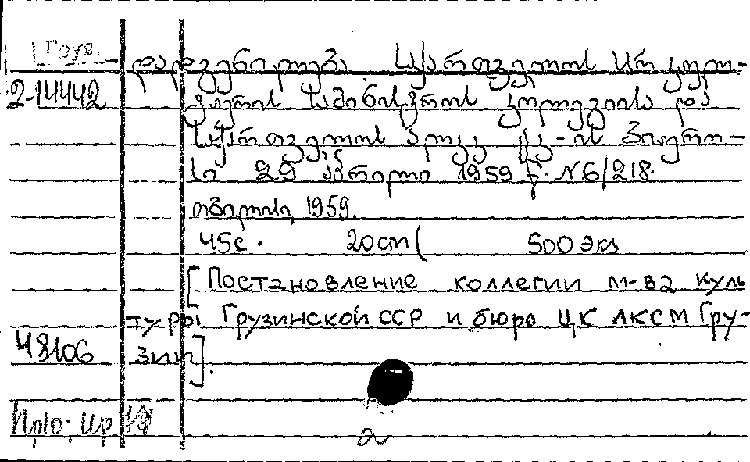 Груз.
2-14442
დადგენილება საქართველოს სსრ კულ-
ტურის სამინისტროს კოლეგიისა და
საქართველოს ალკკ ცკ-ის ბიურო-
სი 29 აპრილი 1959 წ. N6/218.
თბილისი, 1959.
45с. 20см 500 экз
[Постановление коллегии м-ва куль
туры Грузинской ССР и бюро ЦК ЛКСМ Гру-
48106 зии].